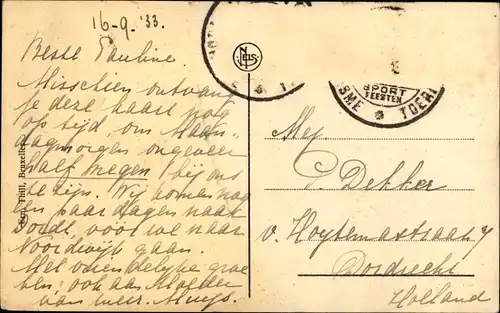 16-9.'33.
Beste Pauline.
Misschien ontvang
je deze kaart nog
op tijd, om Maan-
dagmorgen ongeveer
half negen bij ons
te zijn. Wij komen nog
een paar dagen naar
Dordt, vóór we naar
Noordwijk gaan.
Met vriendelijke groe
ten; ook aan Moeder
van meur. Thuys.
Ern. Thill, Bruxelles
NELS
SPORT
FEESTEN
SME TOERI
Mej.
P. Dekker
v. Hoytemastraat 7
Dordrecht
Holland